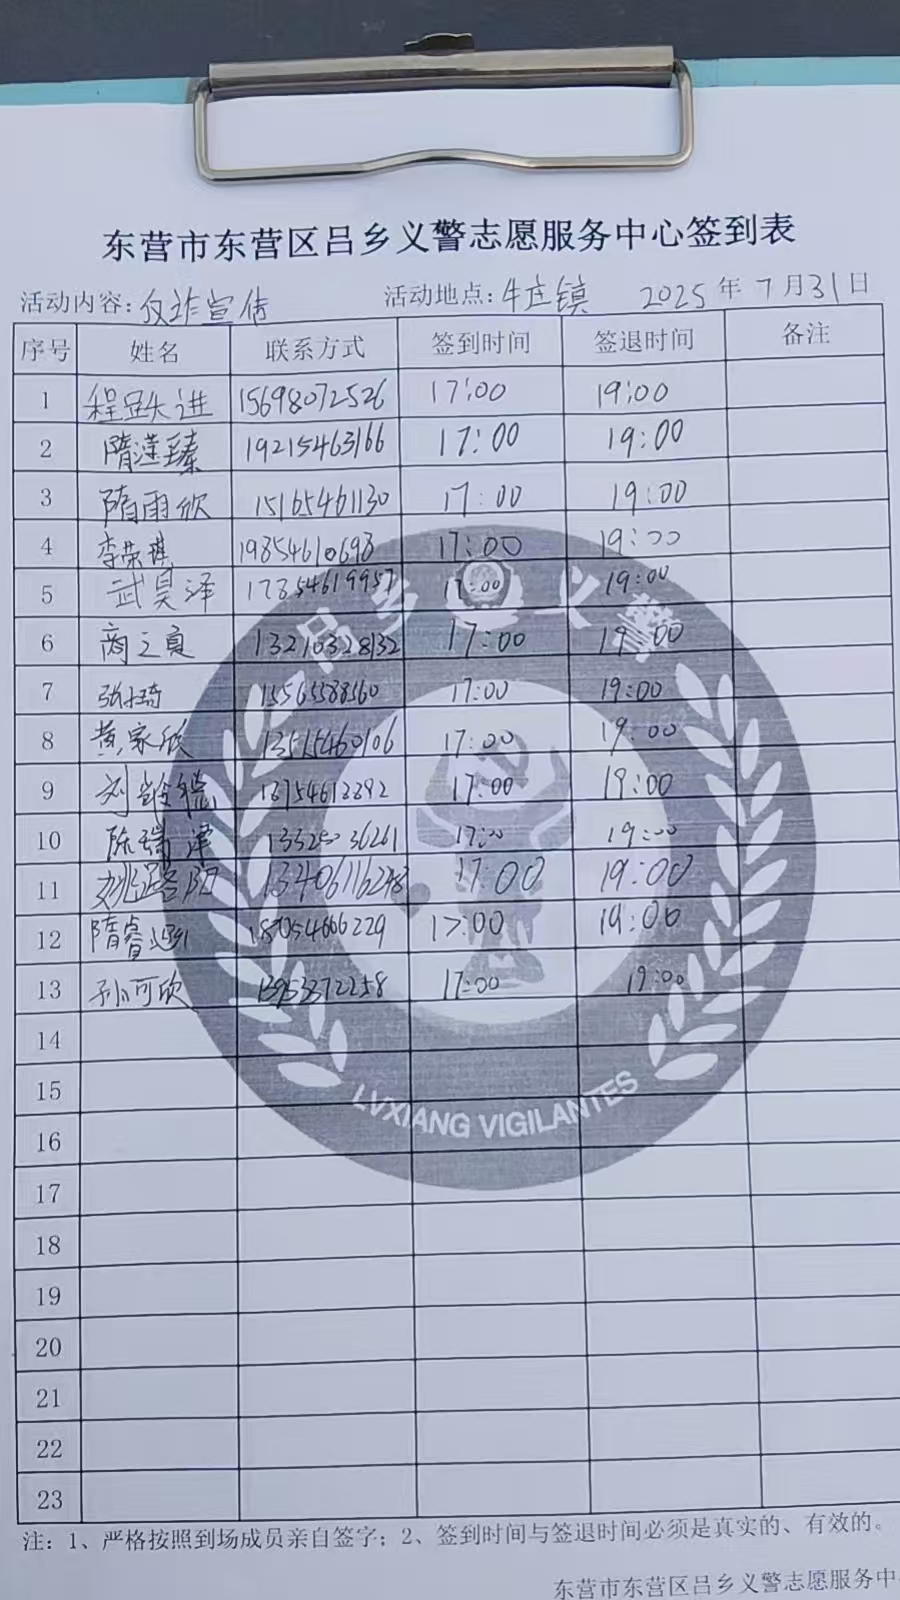 东营市东营区吕乡义警志愿服务中心签到表
活动内容:反诈宣传 活动地点:牛庄镇 2025年7月31日
序号 姓名 联系方式 签到时间 签退时间 备注
1 程跃进 15698072526 17:00 19:00
2 隋滢臻 19215463166 17:00 19:00
3 隋雨欣 15165461130 17:00 19:00
4 李荣祺 19854610698 17:00 19:00
5 武昊泽 17854619957 17:00 19:00
6 商之贠 13210328132 17:00 19:00
7 15565588560 17:00 19:00
8 黄家欣 13515460106 17:00 19:00
9 刘 17:00 19:00
10 陈瑞津 17:00 19:00
11 姚璐阳 13406116248 17:00 19:00
12 隋睿 18705466229 17:00 19:00
13 孙可欣 17:00 19:00
14
15
16
17
18
19
20
21
22
23
吕乡义警
LVXIANG VIGILANTES
注:1、严格按照到场成员亲自签字;2、签到时间与签退时间必须是真实的、有效的。
东营市东营区吕乡义警志愿服务中